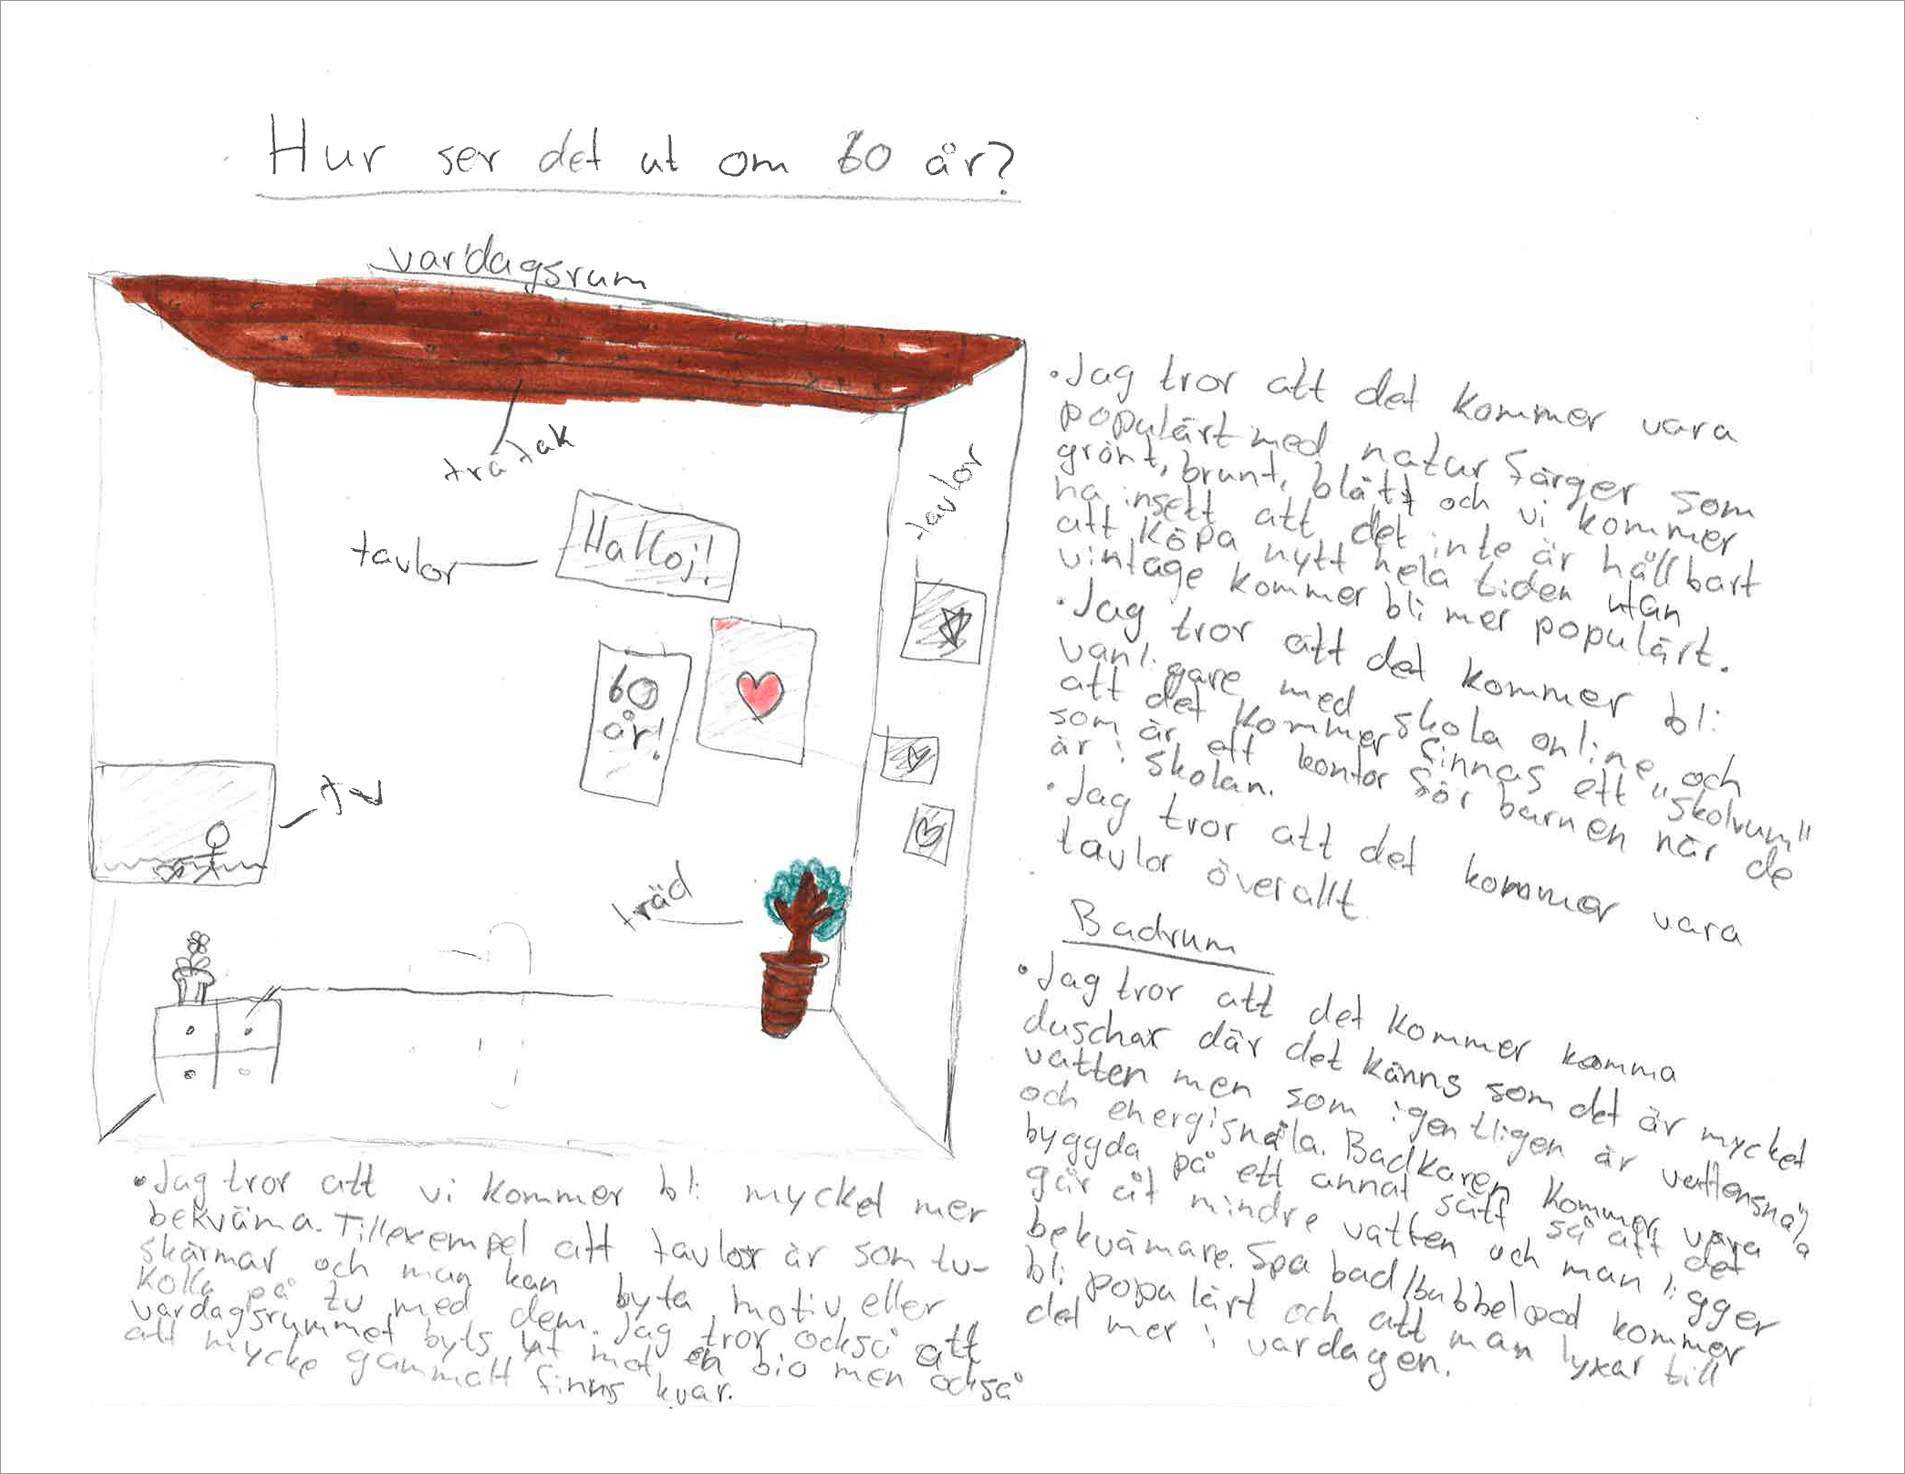 Hur ser det ut om 60 år?
vardagsrum
trätak
tavlor
Halloj!
tavlor
60
år!
tv
träd
• Jag tror att det kommer vara
populärt med naturfärger som
grönt, brunt, blått och vi kommer
ha insett att det inte är hållbart
att köpa nytt hela tiden utan
vintage kommer bli mer populärt.
• Jag tror att det kommer bli
vanligare med skola online, och
att det kommer finnas ett "skolrum"
som är ett kontor för barnen när de
är i skolan.
• Jag tror att det kommer vara
tavlor överallt.
Badrum
• Jag tror att det kommer komma
duschar där det känns som det är mycket
vatten men som igentligen är vattensnåla
och energisnåla. Badkaren kommer vara
byggda på ett annat sätt så att det
går åt mindre vatten och man ligger
bekvämare. Spa bad/bubbelpool kommer
bli populärt och att man lyxar till
det mer i vardagen.
• Jag tror att vi kommer bli mycket mer
bekväma. Tillexempel att tavlor är som tv-
skärmar och man kan byta motiv eller
kolla på tv med dem. Jag tror också att
vardagsrummet byts ut mot en bio men också
att mycke gammalt finns kvar.